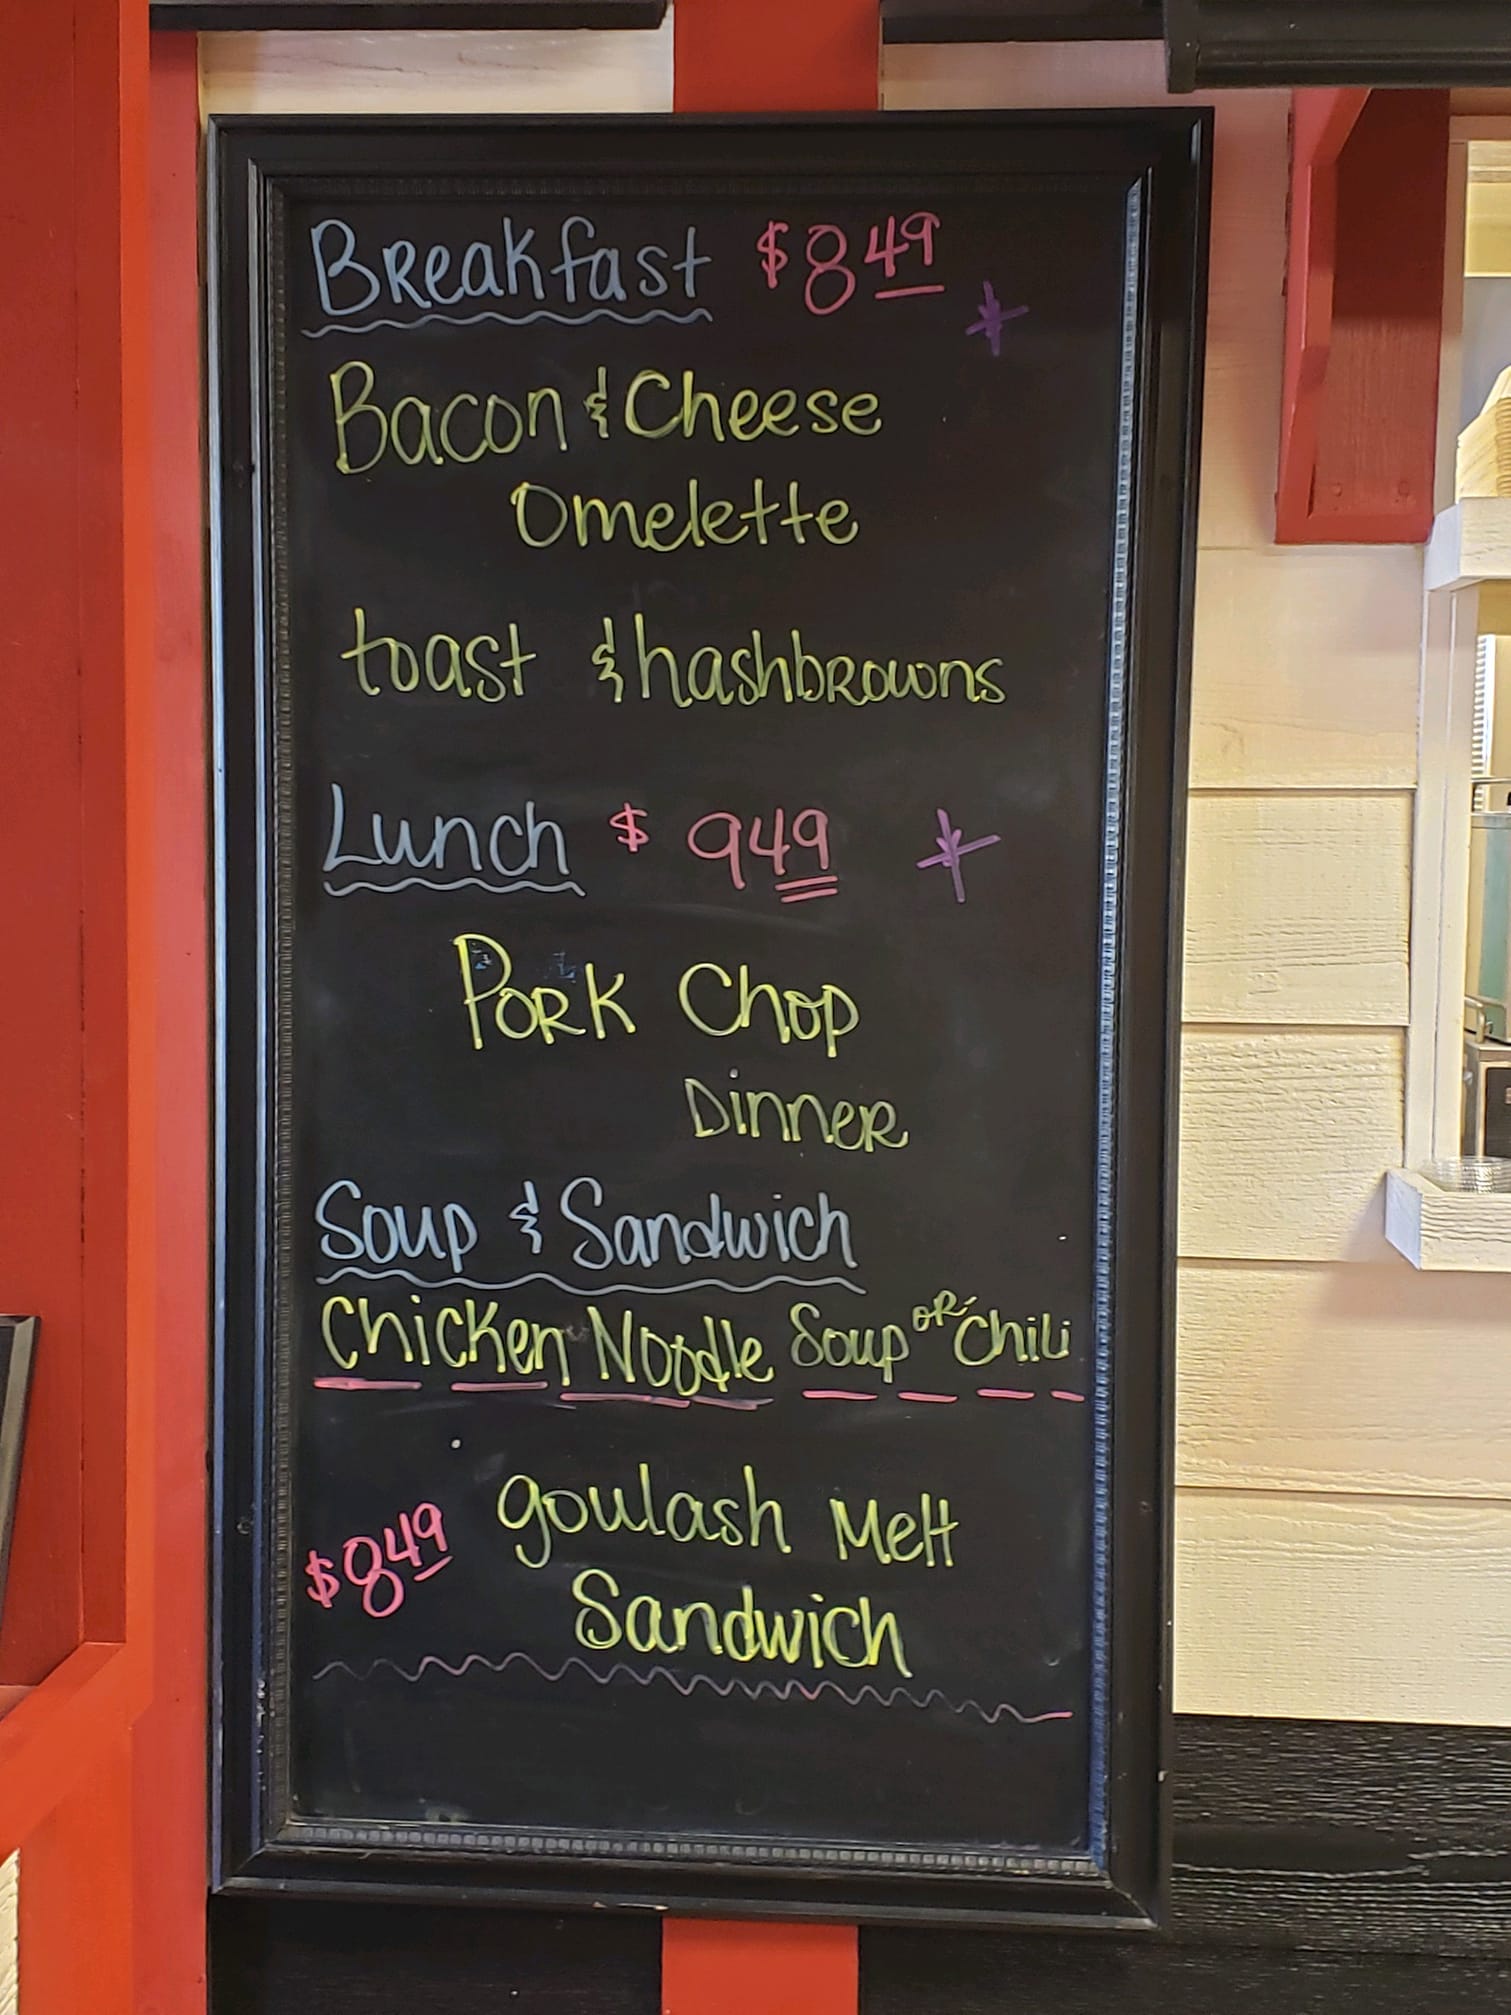 Breakfast $8 49
Bacon & Cheese
Omelette
toast & hashbrowns
Lunch $ 9 49
Pork Chop
Dinner
Soup & Sandwich
Chicken Noodle Soup or Chili
goulash Melt
$8 49
Sandwich